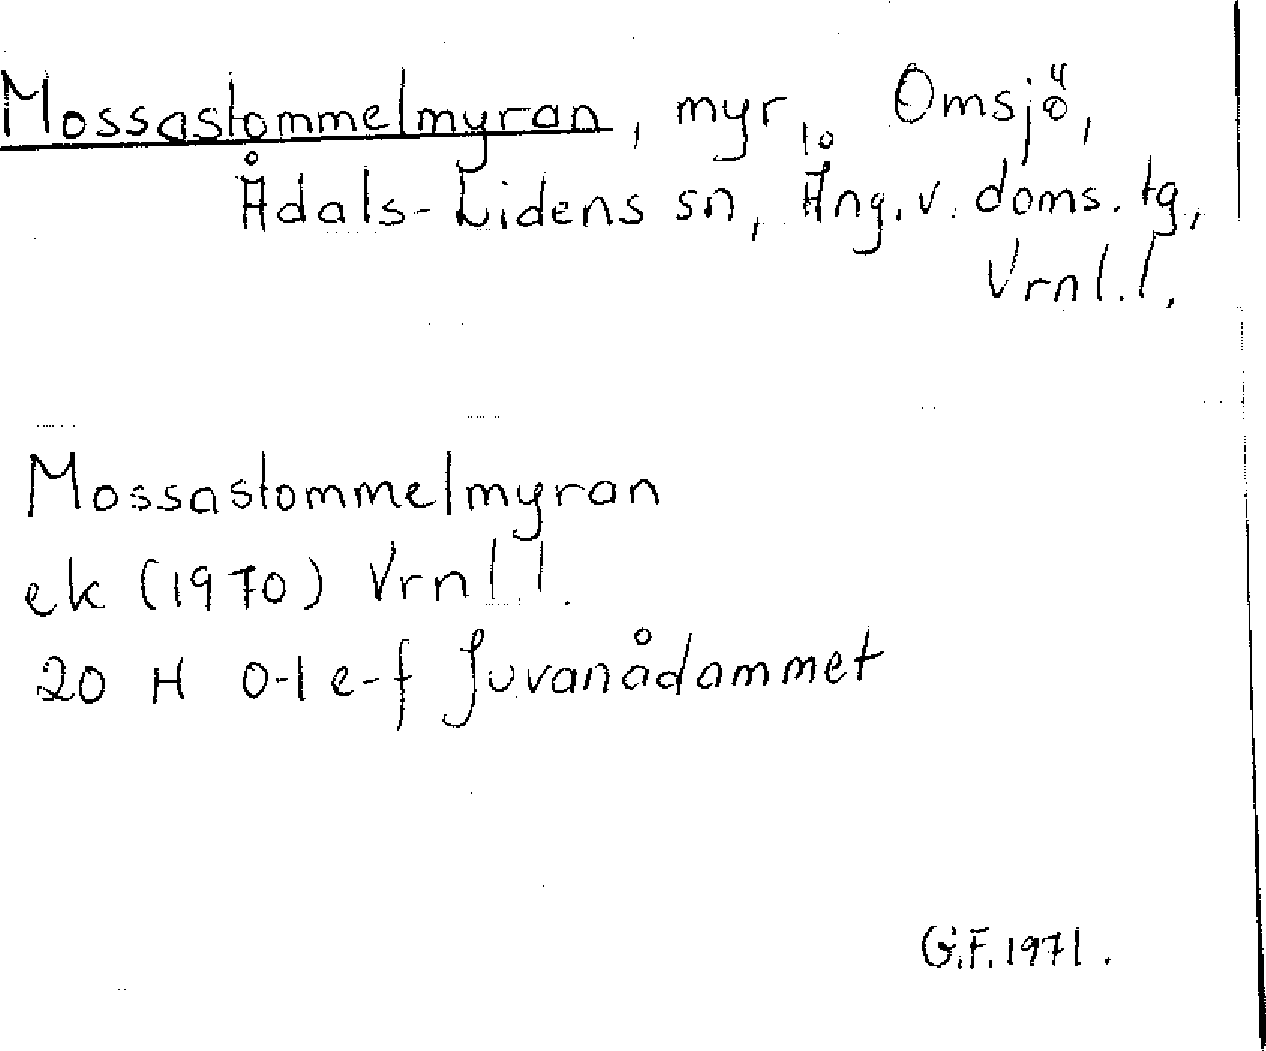 Mossastommelmyran, myr, Omsjö,
Ådals-Lidens sn, Ång. v. doms. tg,
Vrnl.l.
Mossastommelmyran
ek (1970) Vrnl.l.
20 H 0-1 e-f Juvanådammet
G.F. 1971.